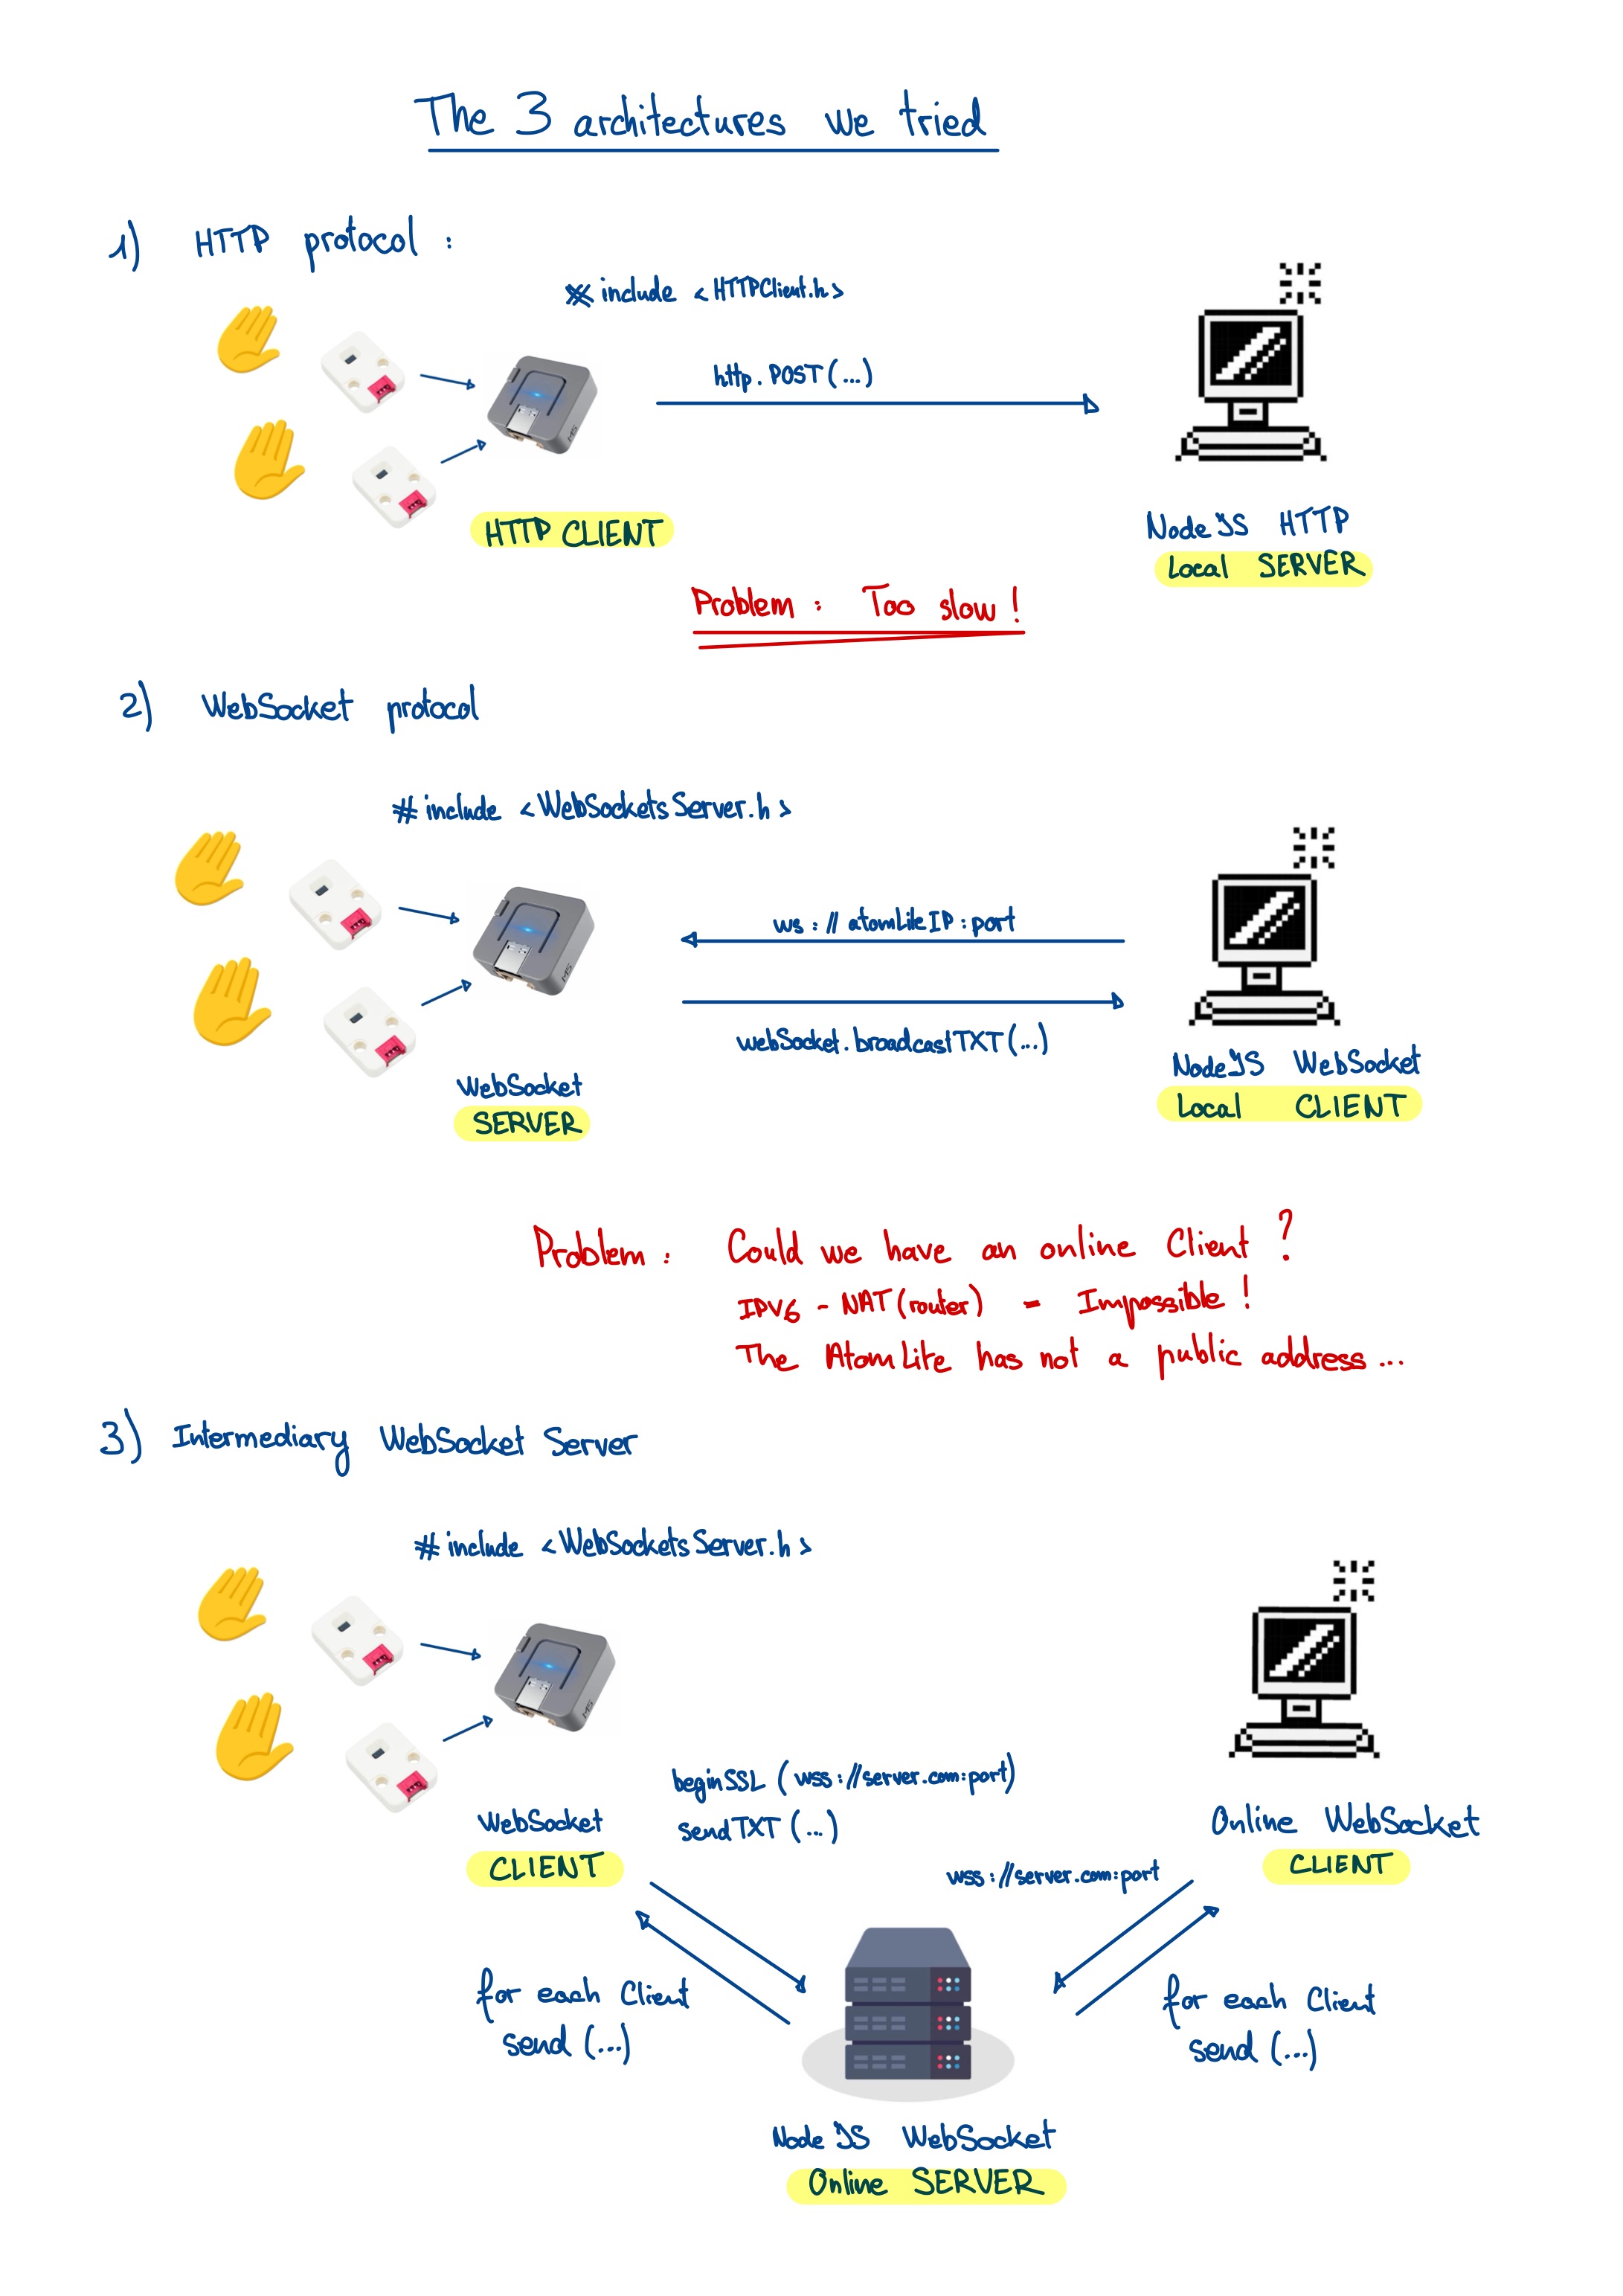 The 3 architectures we tried
1) HTTP protocol :
# include <HTTPClient.h>
http.POST(...)
HTTP CLIENT
NodeJS HTTP
Local SERVER
Problem : Too slow !
2) WebSocket protocol
# include <WebSocketsServer.h>
ws://atomLiteIP:port
webSocket.broadcastTXT(...)
WebSocket
SERVER
NodeJS WebSocket
Local CLIENT
Problem : Could we have an online Client ?
IPV6 - NAT(router) - Impossible !
The AtomLite has not a public address...
3) Intermediary WebSocket Server
# include <WebSocketsServer.h>
beginSSL (wss://server.com:port)
sendTXT (...)
WebSocket
CLIENT
Online WebSocket
CLIENT
wss://server.com:port
for each Client
send (...)
for each Client
send (...)
NodeJS WebSocket
Online SERVER